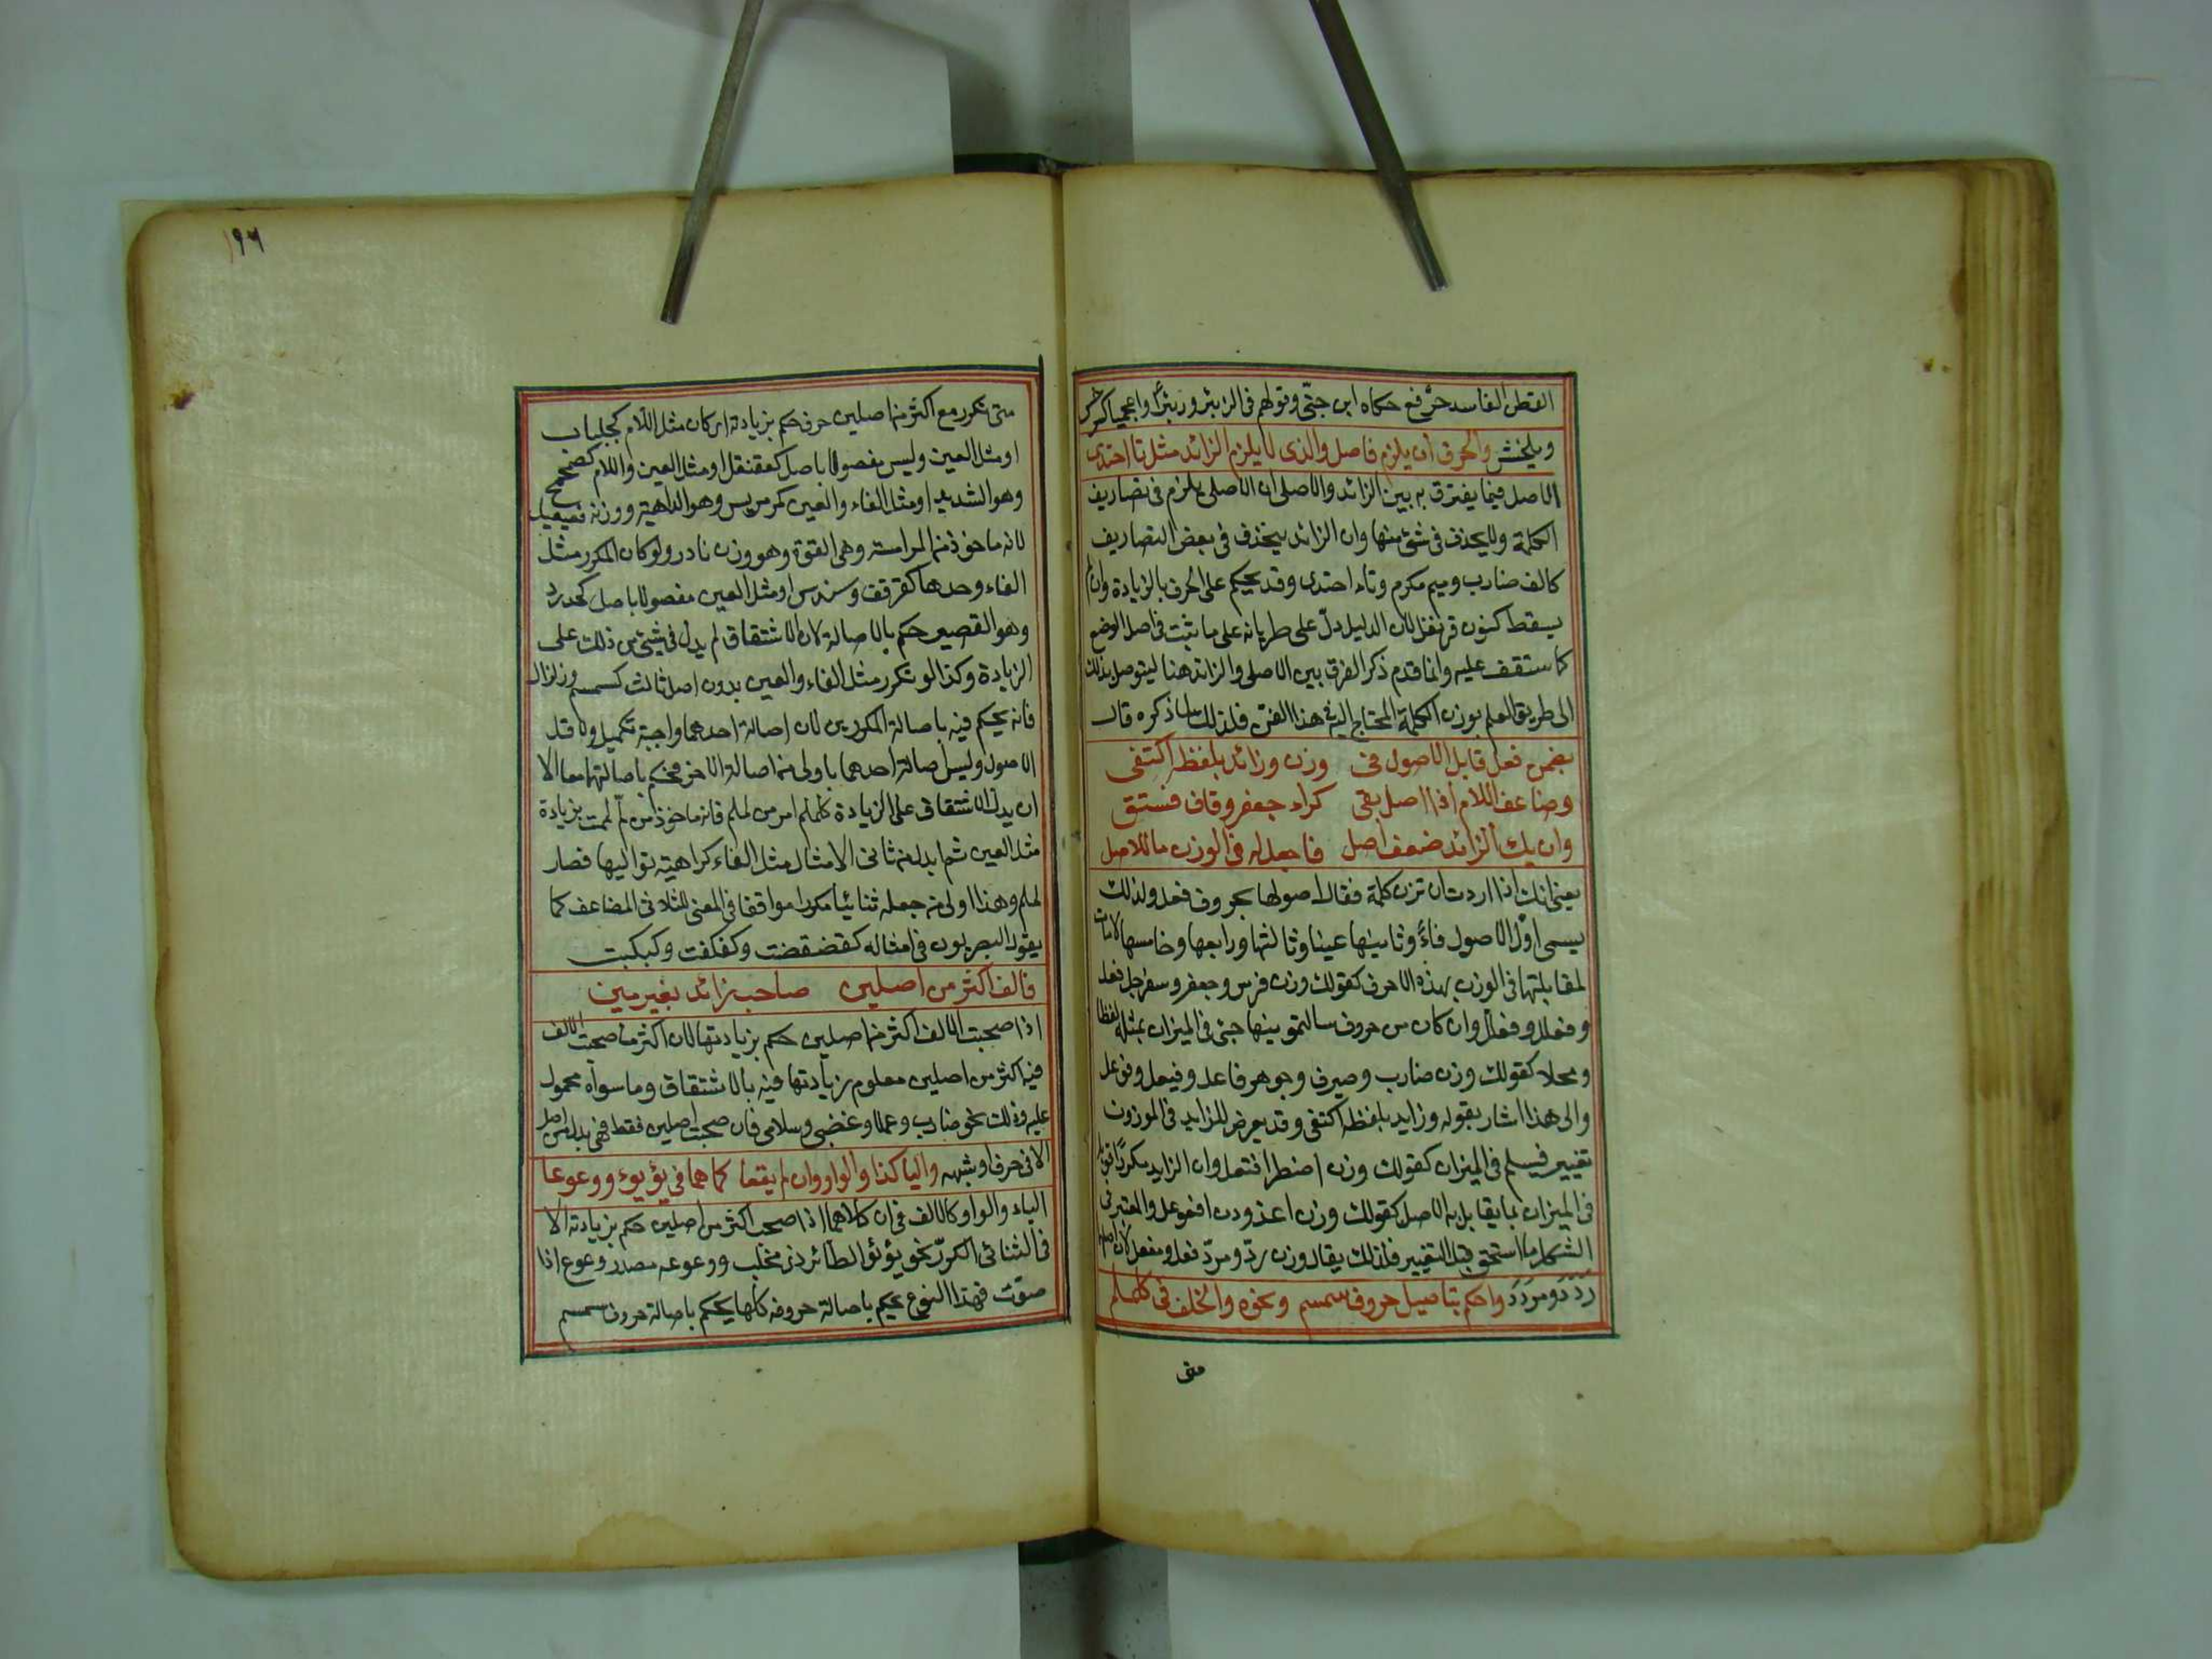 القطن الفاسد خرفع حكاه ابن جنى وقولهم فى الزئبر وزئبر واعجميا كسرخس
وبلخش والحرف ان يلزم فاصل والذى لا يلزم الزائد مثل تا احتذى
الاصل فيما يفترق به بين الزائد والاصلى ان الاصلى يلزم فى تصاريف
الكلمة ولا يحذف فى شئ منها وان الزائد يحذف فى بعض التصاريف
كالف ضارب وميم مكرم وتاء احتذى وقد يحكم على الحرف بالزيادة وان لم
يسقط كنون قرنفل لان الدليل دل على طريانه على ما ثبت فى اصل الوضع
كما ستقف عليه وانما قدم ذكر الفرق بين الاصلى والزائد هنا ليتوصل بذلك
الى طريق العلم بوزن الكلمة المحتاج اليه فى هذا الفن فلذلك لما ذكره قال
بضمن فعل قابل الاصول فى وزن وزائد بلفظه اكتفى
وضاعف اللام اذا اصل بقى كراء جعفر وقاف فستق
وان يك الزائد ضعف اصل فاجعل له فى الوزن ما للاصل
يعنى انك اذا اردت ان تزن كلمة فقابل اصولها بحروف فعل ولذلك
يسمى اول الاصول فاءً وثانيها عينا وثالثها ورابعها وخامسها لامات
لمقابلتها فى الوزن بهذه الاحرف كقولك وزن فرس وجعفر وسفرجل فعل
وفعلل وفعلّل وان كان من حروف سالتمونيها جئ فى الميزان بمثله لفظا
ومحلا كقولك وزن ضارب وصيرف وجوهر فاعل وفيعل وفوعل
والى هذا اشار بقوله وزايد بلفظه اكتفى وقد يعرض للزايد فى الموزون
تغيير فيسلم فى الميزان كقولك وزن اضطر افتعل وان الزايد مكررا قوبل
فى الميزان بما يقابل به الاصل كقولك وزن اغدودن افعوعل والمعتبر فى
الشكل ما استحق قبل التغيير فلذلك يقال وزن ردّ ومردّ فعل ومفعل لان اصلها
ردد ومردد واحكم بتاصيل حروف سمسم ونحوه والخلف فى كلملم
متى
١٩٦
متى تكرر مع اكثر من اصلين حرف حكم بزيادته ان كان مثل اللام كجلباب
او مثل العين وليس مفصولا باصل كعقنقل او مثل العين واللام كصمحمح
وهو الشديد او مثل الفاء والعين كمرمريس وهو الداهية ووزنه فعفعيل
لانه ماخوذ من المراسة وهى القوة وهو وزن نادر ولو كان المكرر مثل
الفاء وحدها كقرقف وسندس او مثل العين مفصولا باصل كحدرد
وهو القصير حكم بالاصالة لان الاشتقاق لم يدل فى شئ من ذلك على
الزيادة وكذا لو تكرر مثل الفاء والعين بدون اصل ثالث كسمسم وزلزال
فانه يحكم فيه باصالة المكررين لان اصالة احدهما واجبة تكميل ولاقل
الاصول وليس اصالة احدهما باولى من اصالة الاخر فحكم باصالتهما معا الا
ان يدل الاشتقاق على الزيادة كلملم امر من لملم فانه ماخوذ من لم لممت بزيادة
مثل العين ثم ابدل من ثانى الامثال مثل الفاء كراهية تواليها فصار
لملم وهذا اولى من جعله ثنائيا مكررا موافقا فى المعنى للثلاثى المضاعف كما
يقول البصريون فى امثاله كقضقضت وكفكفت وكبكبت
فالف اكثر من اصلين صاحب زائد بغير مين
اذا صحبت الالف اكثر من اصلين حكم بزيادتها لان اكثر ما صحبت الالف
فيه اكثر من اصلين معلوم زيادتها فيه بالاشتقاق وما سواه محمول
عليه وذلك نحو ضارب وعماد وغضبى وسلامى فان صحبت اصلين فقط فهى بدل من اصل
الا فى حرف او شبهه واليا كذا والواو وان لم يقعا كما هما فى يؤيؤ ووعوعا
الياء والواو كالالف فى ان كلا هما اذا صحب اكثر من اصلين حكم بزيادته الا
فى الثنائى المكرر نحو يؤيؤ الطائر ذى مخلب ووعوعه مصدر وعوع اذا
صوّت فهذا النوع يحكم باصالة حروفه كلها كما يحكم باصالة حروف سمسم